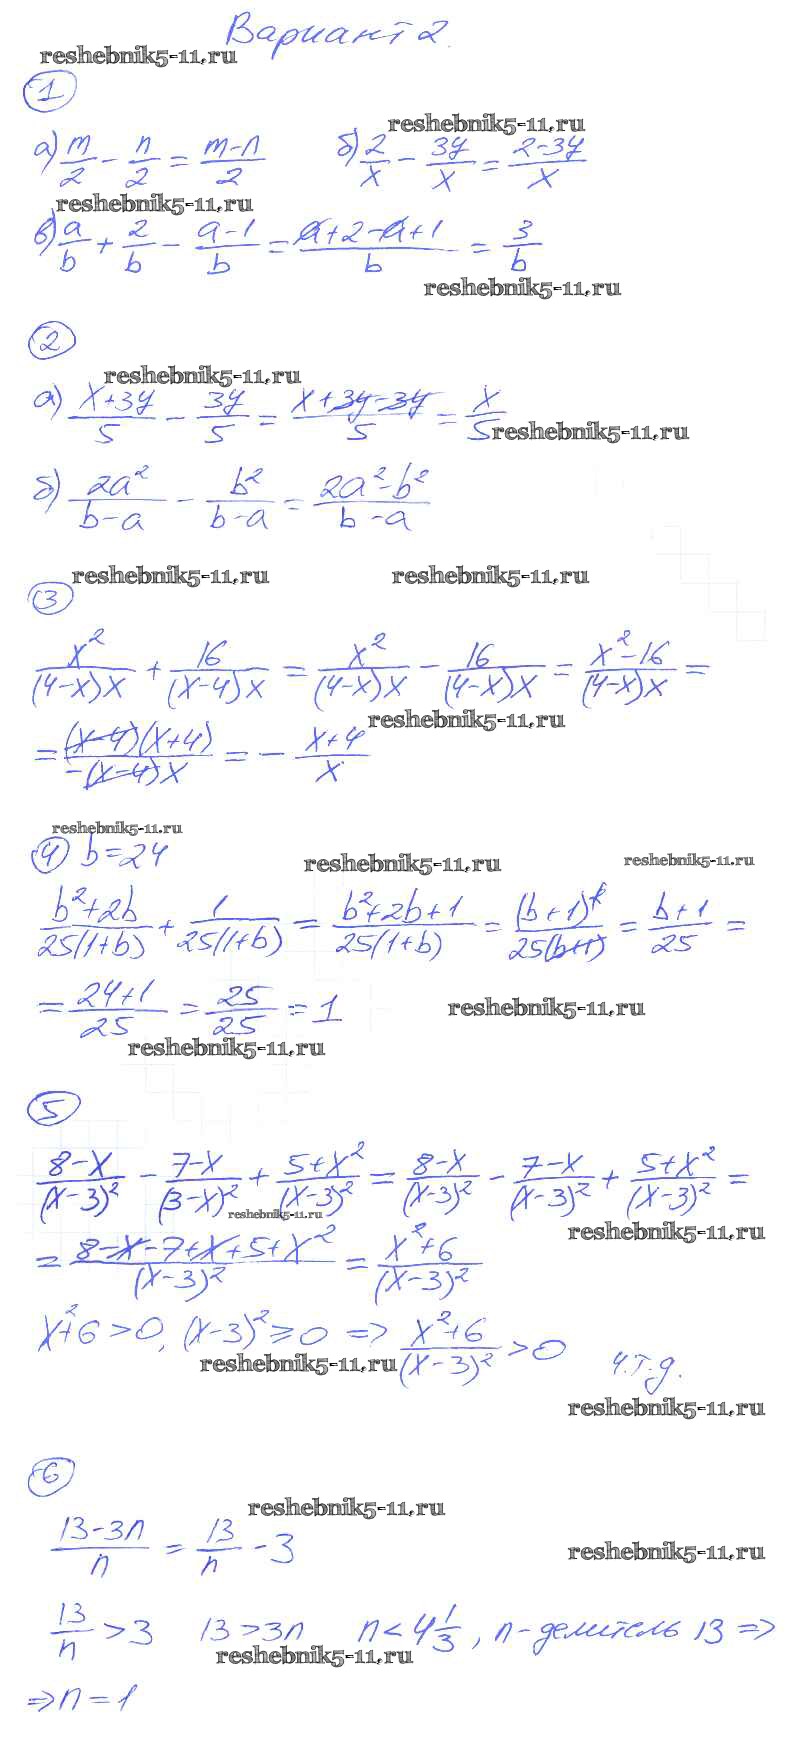 Вариант 2.
reshebnik5-11.ru
1
reshebnik5-11.ru
а) m/2 - n/2 = (m-n)/2 б) 2/x - 3y/x = (2-3y)/x
reshebnik5-11.ru
в) a/b + 2/b - (a-1)/b = (a+2-a+1)/b = 3/b
reshebnik5-11.ru
2
reshebnik5-11.ru
а) (x+3y)/5 - 3y/5 = (x+3y-3y)/5 = x/5
reshebnik5-11.ru
б) 2a²/(b-a) - b²/(b-a) = (2a²-b²)/(b-a)
reshebnik5-11.ru reshebnik5-11.ru
3
x²/((4-x)x) + 16/((x-4)x) = x²/((4-x)x) - 16/((4-x)x) = (x²-16)/((4-x)x) =
reshebnik5-11.ru
= ((x-4)(x+4))/(-(x-4)x) = - (x+4)/x
reshebnik5-11.ru
4 b=24
reshebnik5-11.ru reshebnik5-11.ru
(b²+2b)/(25(1+b)) + 1/(25(1+b)) = (b²+2b+1)/(25(1+b)) = (b+1)²/(25(b+1)) = (b+1)/25 =
= (24+1)/25 = 25/25 = 1
reshebnik5-11.ru
reshebnik5-11.ru
5
(8-x)/(x-3)² - (7-x)/(3-x)² + (5+x²)/(x-3)² = (8-x)/(x-3)² - (7-x)/(x-3)² + (5+x²)/(x-3)² =
reshebnik5-11.ru
reshebnik5-11.ru
= (8-x-7+x+5+x²)/(x-3)² = (x²+6)/(x-3)²
x²+6 > 0, (x-3)² ⩾ 0 => (x²+6)/(x-3)² > 0 ч.т.д.
reshebnik5-11.ru
reshebnik5-11.ru
6
reshebnik5-11.ru
(13-3n)/n = 13/n - 3
reshebnik5-11.ru
13/n > 3 13 > 3n n < 4 1/3, n-делитель 13 =>
reshebnik5-11.ru
=> n = 1